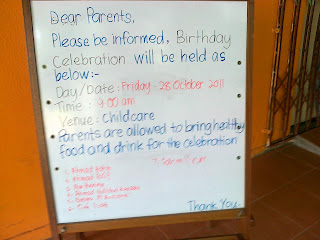 Dear Parents,
Please be informed, Birthday
Celebration will be held as
below:-
Day/Date : Friday - 28 October 2011
Time : 9.00 am
Venue : Childcare
Parents are allowed to bring healthy
food and drink for the celebration
1. Ahmad
2. Ahmad
3.
4. Ahmad
5.
6.
7.
Thank You.